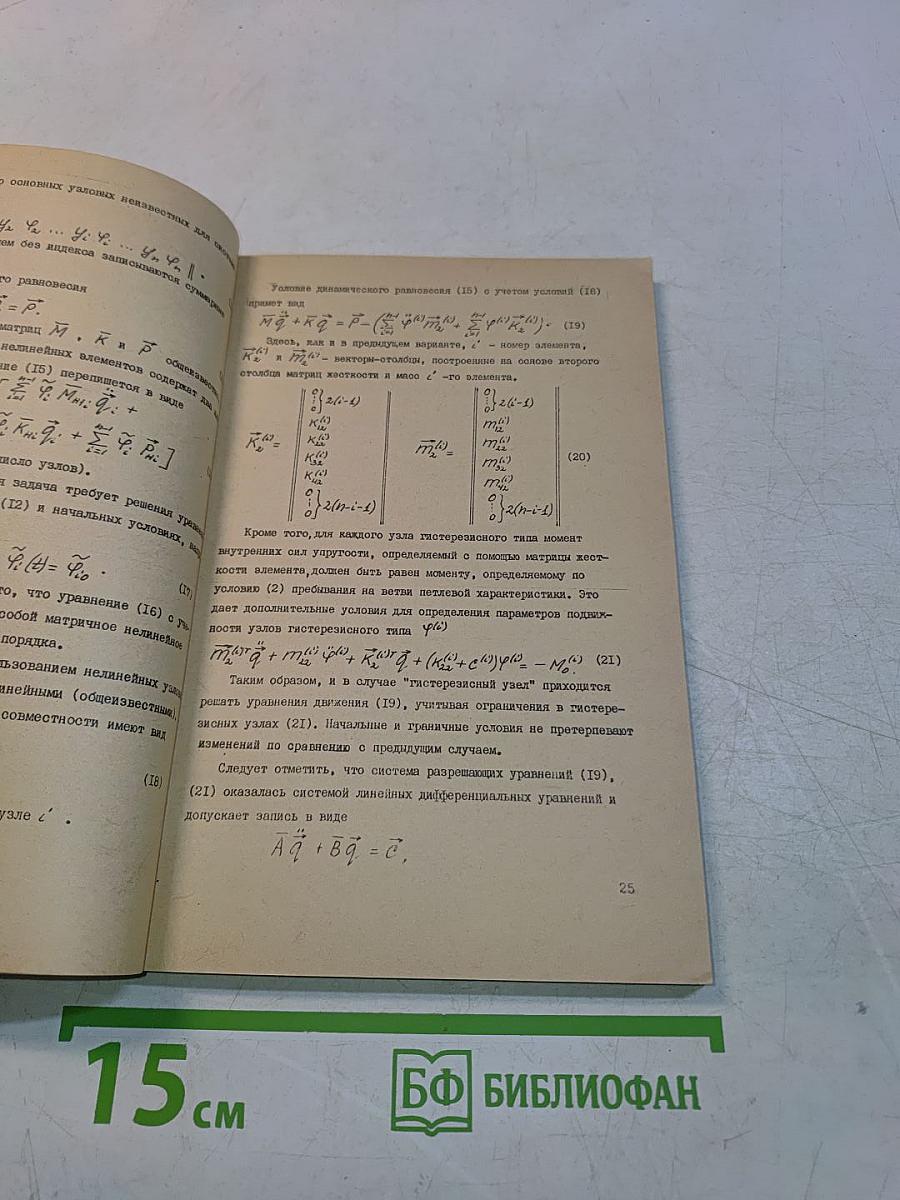 о основных узловых неизвестных для системы
y₂ φ₂ ... yᵢ φᵢ ... yₙ φₙ ‖ .
ем без индекса записываются суммарные
го равновесия
= P⃗.
матриц M̄ , K̄ и P⃗
нелинейных элементов содержат два
ние (I5) перепишется в виде
[ Σ φ̃ᵢ M̄ₙᵢ q̈ᵢ +
K̄ₙᵢ q⃗ᵢ + Σ φ̃ᵢ P⃗ₙᵢ ]
число узлов).
я задача требует решения
(I2) и начальных условиях,
φ̃ᵢ(t) = φ̃ᵢ₀ .
(I7)
то, что уравнение (I6) с
собой матричное нелинейное
порядка.
льзованием нелинейных
инейными (общеизвестными),
совместности имеют вид
(I8)
узле i .
Условие динамического равновесия (I5) с учетом условий (I6)
примет вид
M̄ q̈⃗ + K̄ q⃗ = P⃗ − ( Σ φ̈⁽ⁱ⁾ m⃗₂⁽ⁱ⁾ + Σ φ⁽ⁱ⁾ K⃗₂⁽ⁱ⁾ ). (I9)
Здесь, как и в предыдущем варианте, i - номер элемента,
K⃗₂⁽ⁱ⁾ и m⃗₂⁽ⁱ⁾ - векторы-столбцы, построенные на основе второго
столбца матриц жесткости и масс i -го элемента.
0 ⋮ 0 } 2(i-1) 0 ⋮ 0 } 2(i-1)
K₁₂⁽ⁱ⁾ m₁₂⁽ⁱ⁾
K⃗₂⁽ⁱ⁾ = K₂₂⁽ⁱ⁾ m⃗₂⁽ⁱ⁾ = m₂₂⁽ⁱ⁾ (20)
K₃₂⁽ⁱ⁾ m₃₂⁽ⁱ⁾
K₄₂⁽ⁱ⁾ m₄₂⁽ⁱ⁾
0 ⋮ 0 } 2(n-i-1) 0 ⋮ 0 } 2(n-i-1)
Кроме того, для каждого узла гистерезисного типа момент
внутренних сил упругости, определяемый с помощью матрицы жест-
кости элемента, должен быть равен моменту, определяемому по
условию (2) пребывания на ветви петлевой характеристики. Это
дает дополнительные условия для определения параметров подвиж-
ности узлов гистерезисного типа φ⁽ⁱ⁾
m⃗₂⁽ⁱ⁾ᵀ q̈⃗ + m₂₂⁽ⁱ⁾ φ̈⁽ⁱ⁾ + K⃗₂⁽ⁱ⁾ᵀ q⃗ + (K₂₂⁽ⁱ⁾ + c⁽ⁱ⁾) φ⁽ⁱ⁾ = − M₀⁽ⁱ⁾. (2I)
Таким образом, и в случае "гистерезисный узел" приходится
решать уравнения движения (I9), учитывая ограничения в гистере-
зисных узлах (2I). Начальные и граничные условия не претерпевают
изменений по сравнению с предыдущим случаем.
Следует отметить, что система разрешающих уравнений (I9),
(2I) оказалась системой линейных дифференциальных уравнений и
допускает запись в виде
Ā q̈⃗ + B̄ q⃗ = c⃗,
25
15 см
БФ БИБЛИОФАН